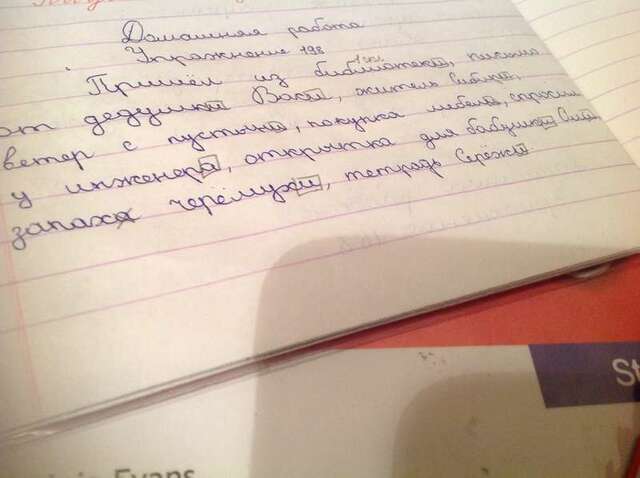 Домашняя работа
Упражнение 198
1 скл.
Пришёл из библиотеки, письмо
от дедушки Васи, житель Сибири,
ветер с пустыни, покупка мебели, спросил
у инженера, открытка для бабушки Оли,
запах черёмухи, тетрадь Серёжи
St
Evans